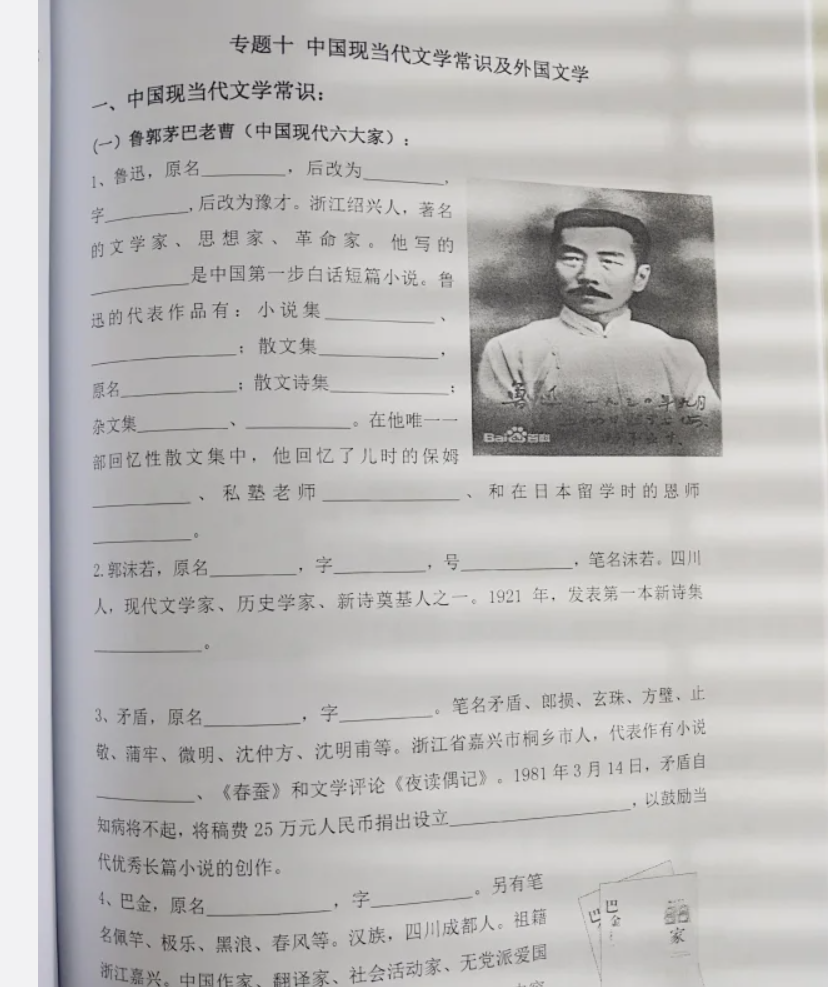 专题十 中国现当代文学常识及外国文学
一、中国现当代文学常识：
(一）鲁郭茅巴老曹（中国现代六大家）：
1、鲁迅，原名________，后改为________，
字________，后改为豫才。浙江绍兴人，著名
的文学家、思想家、革命家。他写的
________是中国第一步白话短篇小说。鲁
迅的代表作品有：小说集________、
________；散文集________，
原名________；散文诗集________；
杂文集________、________。在他唯一一
部回忆性散文集中，他回忆了儿时的保姆
________、私塾老师________、和在日本留学时的恩师
________。
鲁迅 一九三〇年九月
Bai百科
2.郭沫若，原名________，字________，号________，笔名沫若。四川
人，现代文学家、历史学家、新诗奠基人之一。1921 年，发表第一本新诗集
________。
3、矛盾，原名________，字________。笔名矛盾、郎损、玄珠、方璧、止
敬、蒲牢、微明、沈仲方、沈明甫等。浙江省嘉兴市桐乡市人，代表作有小说
________、《春蚕》和文学评论《夜读偶记》。1981 年 3 月 14 日，矛盾自
知病将不起，将稿费 25 万元人民币捐出设立________，以鼓励当
代优秀长篇小说的创作。
4、巴金，原名________，字________。另有笔
名佩竿、极乐、黑浪、春风等。汉族，四川成都人。祖籍
浙江嘉兴。中国作家、翻译家、社会活动家、无党派爱国
巴金
家